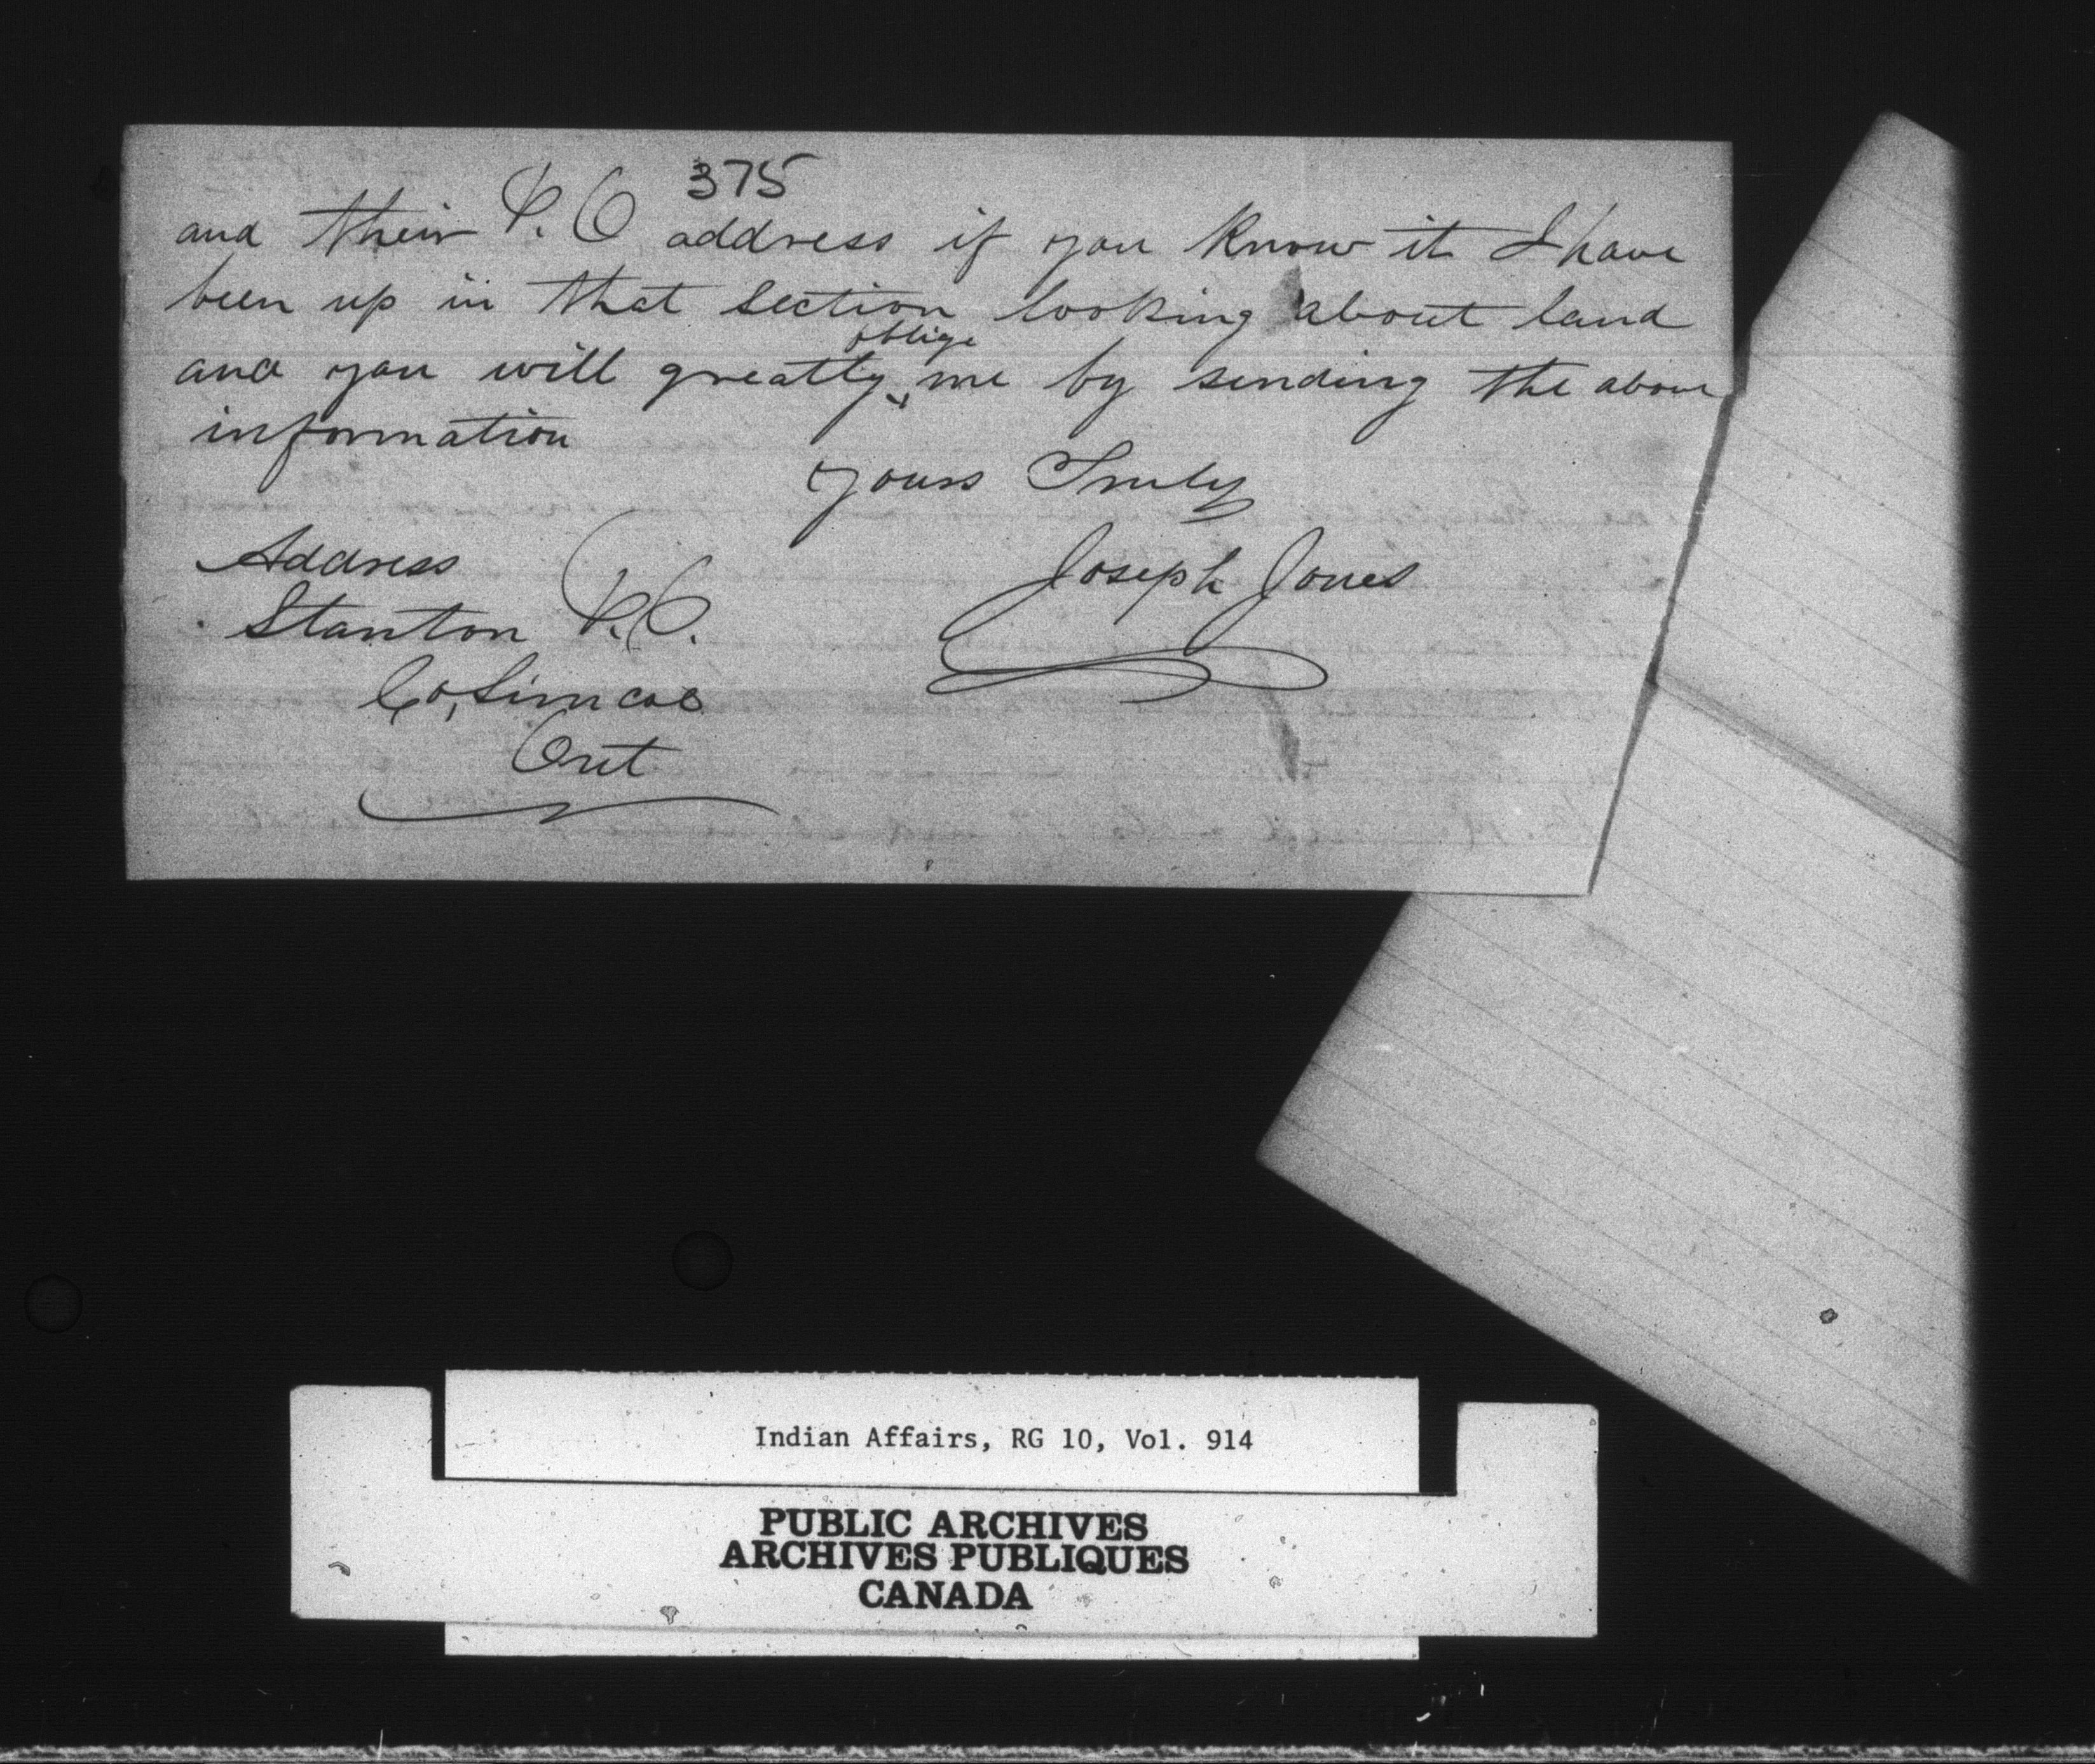 375
and their P. O address if you know it I have
been up in that section looking about land
and you will greatly oblige me by sending the above
information
Yours Truly
Joseph Jones
Address
Stanton P.O.
Co, Simcoe
Ont
Indian Affairs, RG 10, Vol. 914
PUBLIC ARCHIVES
ARCHIVES PUBLIQUES
CANADA